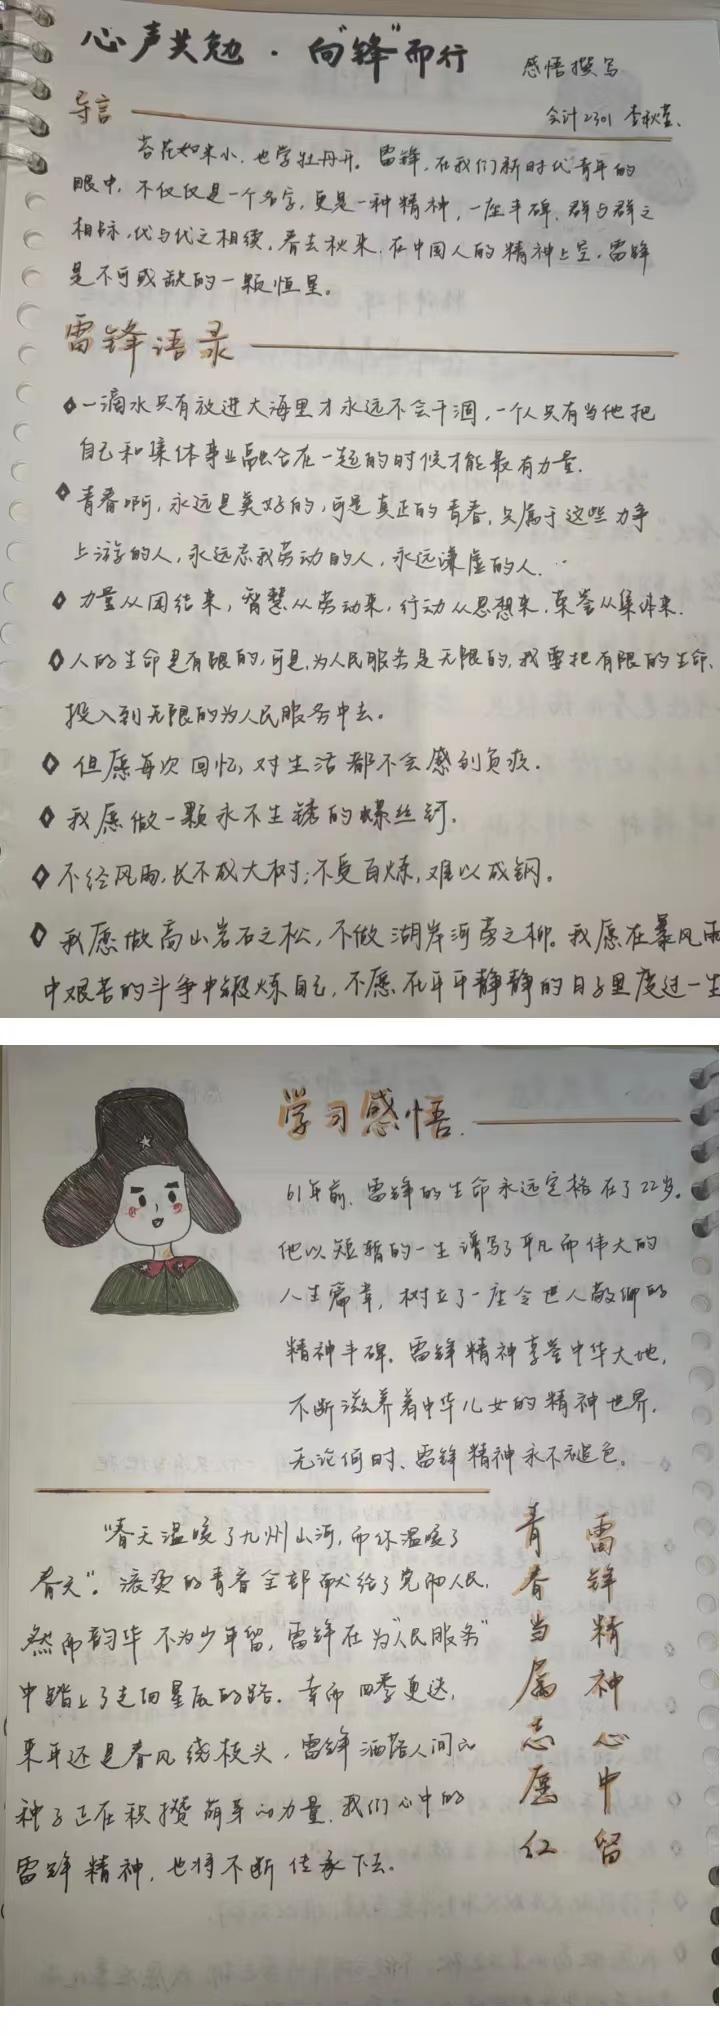 心声共勉·向“锋”而行
感悟撰写
导言
会计2301 李秋萱.
苔花如米小,也学牡丹开。雷锋,在我们新时代青年的
眼中,不仅仅是一个名字,更是一种精神,一座丰碑.群与群之
相标,代与代之相续,春去秋来,在中国人的精神上空,雷锋
是不可或缺的一颗恒星。
雷锋语录
一滴水只有放进大海里才永远不会干涸,一个人只有当他把
自己和集体事业融合在一起的时候才能最有力量.
青春啊,永远是美好的,可是真正的青春,只属于这些力争
上游的人,永远忘我劳动的人,永远谦虚的人.
力量从团结来,智慧从劳动来,行动从思想来,荣誉从集体来.
人的生命是有限的,可是,为人民服务是无限的,我要把有限的生命、
投入到无限的为人民服务中去。
但愿每次回忆,对生活都不会感到负疚.
我愿做一颗永不生锈的螺丝钉.
不经风雨,长不成大树;不受百炼,难以成钢。
我愿做高山岩石之松,不做湖岸河旁之柳。我愿在暴风雨
中艰苦的斗争中锻炼自己,不愿在平平静静的日子里度过一生
学习感悟.
61年前,雷锋的生命永远定格在了22岁。
他以短暂的一生谱写了平凡而伟大的
人生篇章,树立了一座令世人敬仰的
精神丰碑。雷锋精神享誉中华大地,
不断滋养着中华儿女的精神世界.
无论何时、雷锋精神永不褪色。
“春天温暖了九州山河,而你温暖了
春天”。滚烫的青春全部献给了党和人民,
然而韵华不为少年留,雷锋在为“人民服务”
中踏上了走向星辰的路.幸而四季更迭,
来年还是春风绕枝头,雷锋洒落人间的
种子正在积攒萌芽的力量.我们心中的
雷锋精神,也将不断传承下去.
雷锋精神心中留
青春当属志愿红